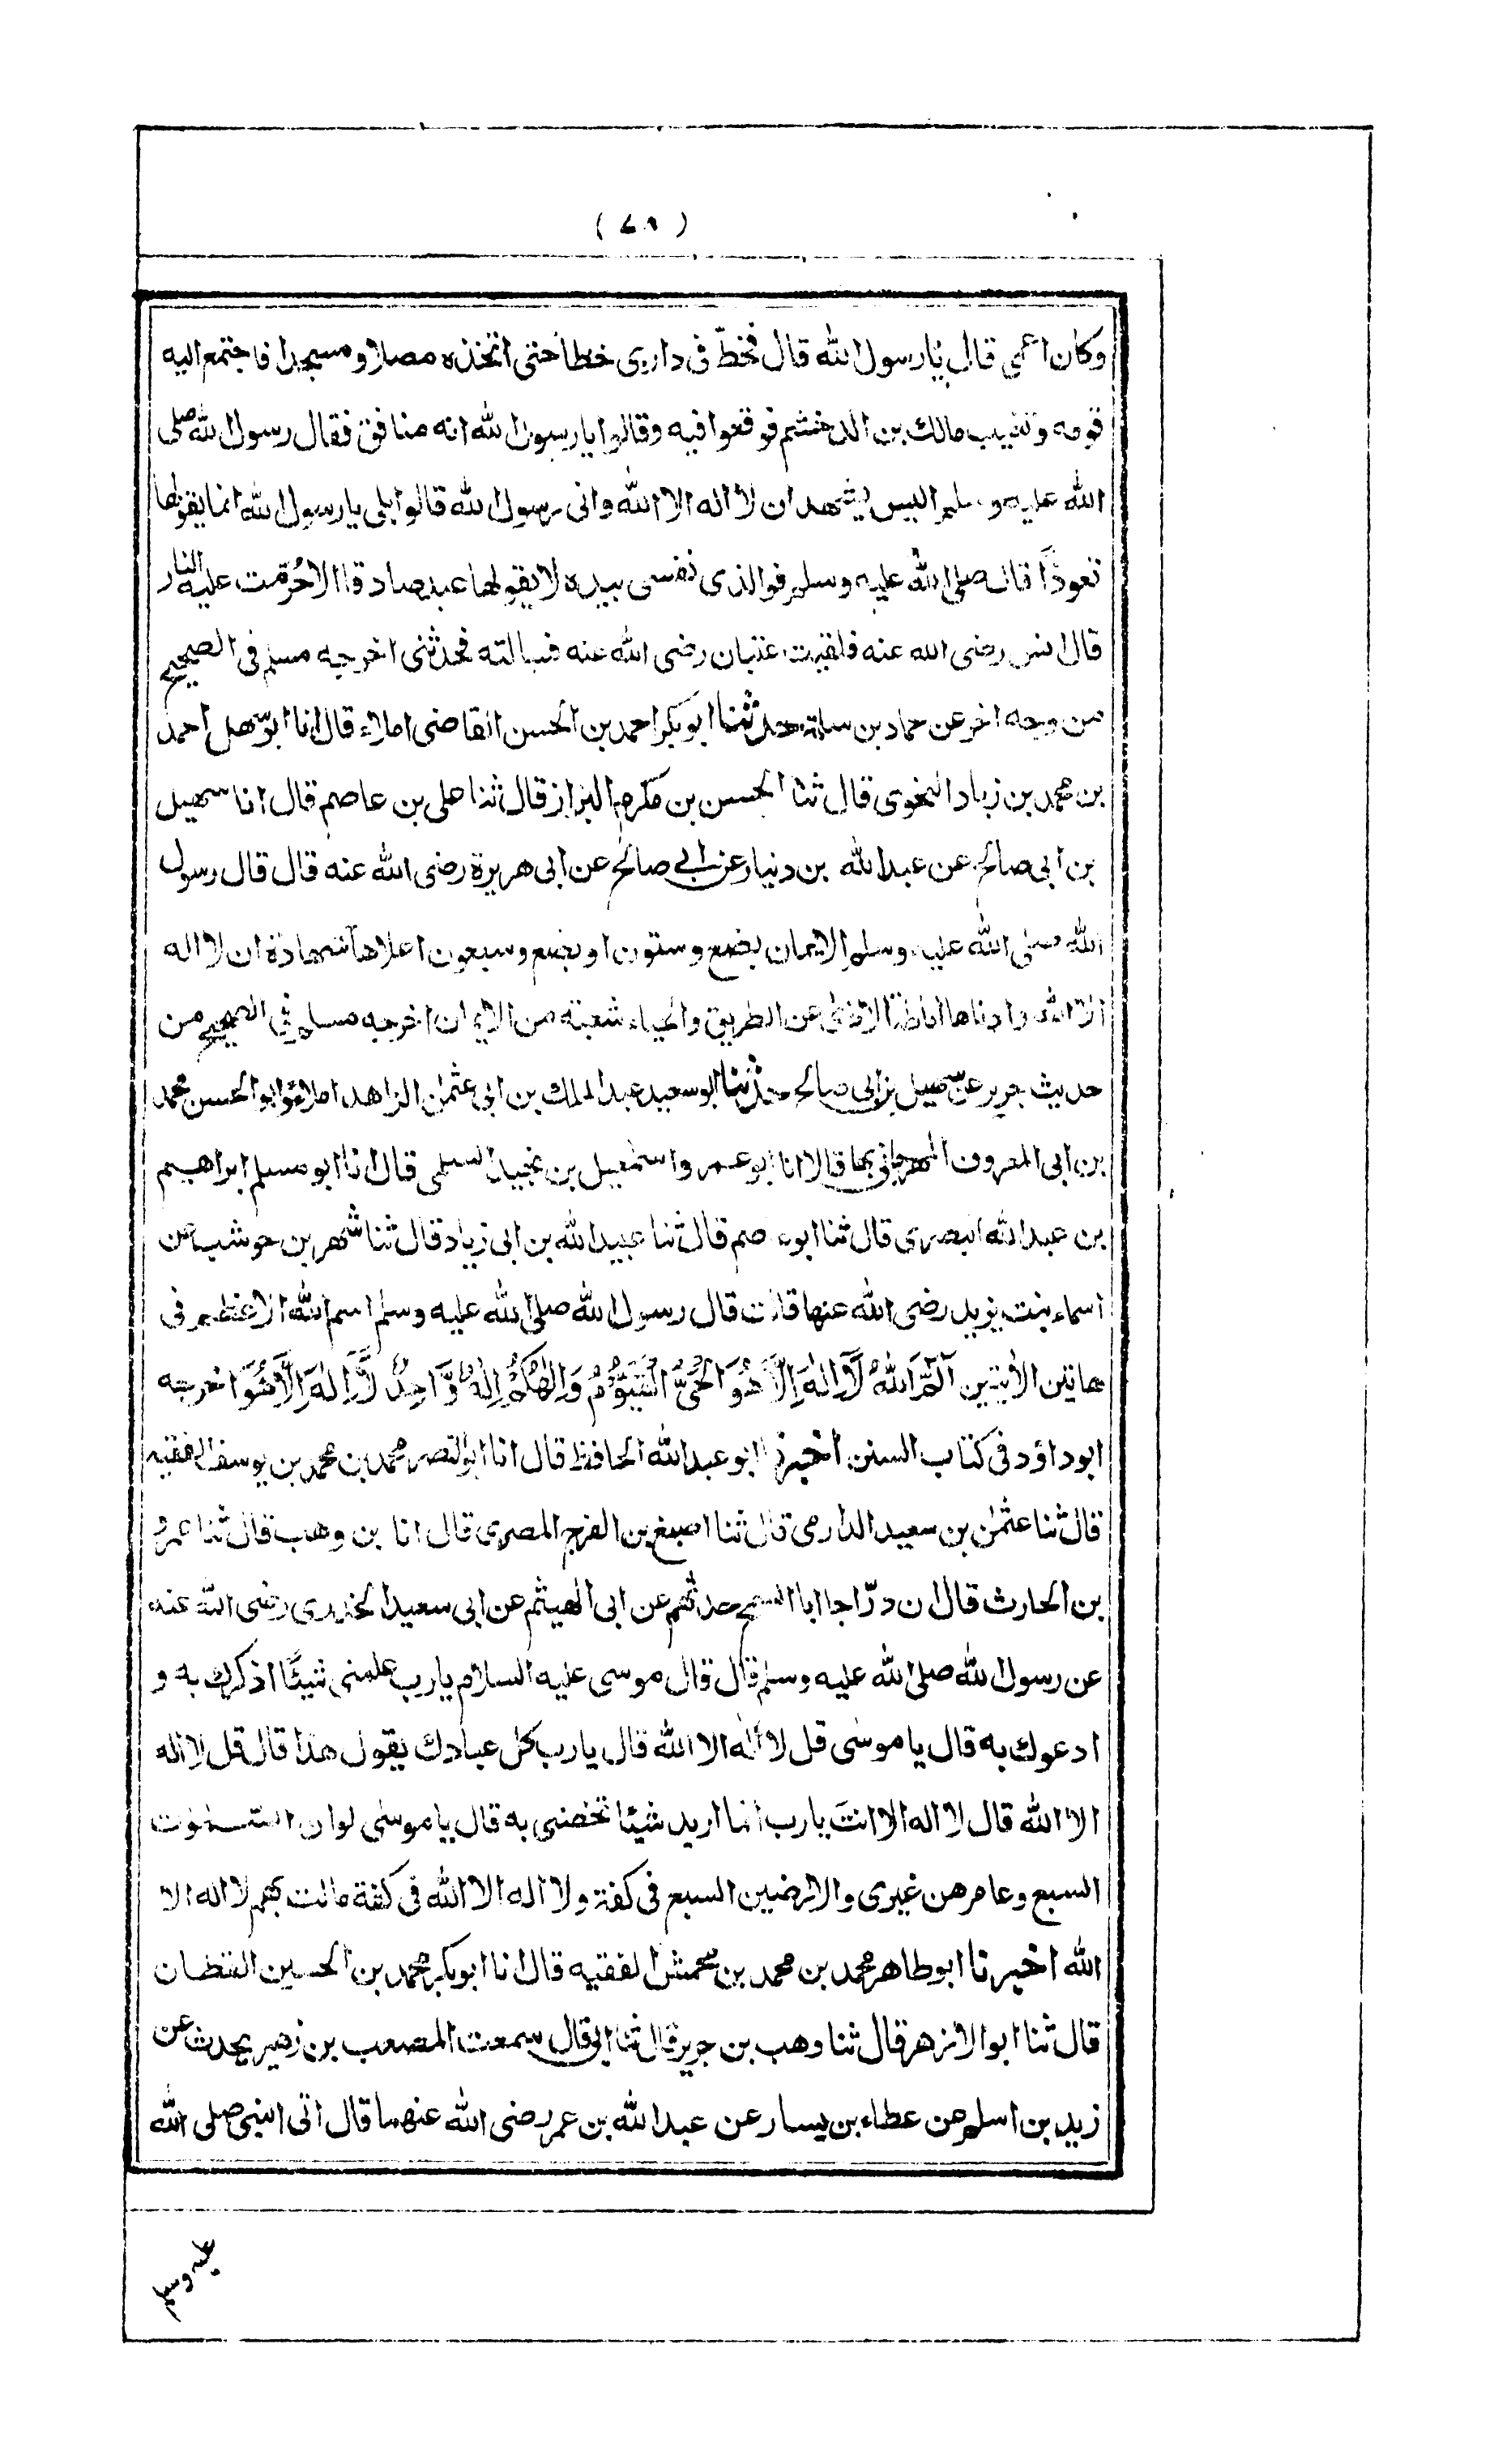 (٧٨)
وكان اعمى قال يارسول الله قال فخطّ فى دارى خطا حتى اتخذه مصلا ومسجدا فاجتمع اليه
قومه وتغيب مالك بن الدخشم فوقعوا فيه وقالوا يارسول الله انه منافق فقال رسول الله صلى
الله عليه وسلم اليس يشهد ان لا اله الا الله وانى رسول الله قالوا بلى يا رسول الله انما يقولها
تعوذًا قال صلى الله عليه وسلم فوالذى نفسى بيده لا يقولها عبد صادقا الا حُرّمت عليه النار
قال انس رضى الله عنه فلقيت عتبان رضى الله عنه فسالته فحدثنى اخرجه مسلم فى الصحيح
من وجه اخر عن حماد بن سلمة حدثنا ابوبكر احمد بن الحسن القاضى املاء قال انا ابو سهل احمد
بن محمد بن زياد النحوى قال ثنا الحسن بن مكرم البزاز قال ثنا على بن عاصم قال انا سهيل
بن ابى صالح عن عبد الله بن دنيار عن ابى صالح عن ابى هريرة رضى الله عنه قال قال رسول
الله صلى الله عليه وسلم الايمان بضع وستون او بضع وسبعون اعلاها شهادة ان لا اله
الا الله وادناها اماطة الاذى عن الطريق والحياء شعبة من الايمان اخرجه مسلم فى الصحيح من
حديث جرير عن سهيل بن ابى صالح حدثنا ابو سعيد عبد الملك بن ابى عثمن الزاهد املاء وابو الحسن محمد
بن ابى المعروف المهرجانى بها قالا انا ابو عمرو اسمعيل بن نجيد السلمى قال انا ابو مسلم ابراهيم
بن عبد الله البصرى قال ثنا ابو عاصم قال ثنا عبيد الله بن ابى زياد قال ثنا شهر بن حوشب عن
اسماء بنت يزيد رضى الله عنها قالت قال رسول الله صلى الله عليه وسلم اسم الله الاعظم فى
هاتين الأيتين آلٓمّٓ اَللّٰهُ لَآ اِلٰهَ اِلَّا هُوَ الْحَيُّ الْقَيُّوْمُ وَاِلٰهُكُمْ اِلٰهٌ وَّاحِدٌ لَآ اِلٰهَ اِلَّا هُوَ اخرجه
ابو داؤد فى كتاب السنن اخبرنا ابو عبد الله الحافظ قال انا ابو النصر محمد بن محمد بن يوسف الفقيه
قال ثنا عثمٰن بن سعيد الدارمى قال ثنا اصبغ بن الفرج المصرى قال انا بن وهب قال ثنا عمرو
بن الحارث قال ان درّاجا ابا السمح حدثهم عن ابى الهيثم عن ابى سعيد الخدرى رضى الله عنه
عن رسول الله صلى الله عليه وسلم قال قال موسى عليه السلام يارب علمنى شيئًا اذكرك به و
ادعوك به قال يا موسى قل لا اله الا الله قال يارب كل عبادك يقول هذا قال قل لا اله
الا الله قال لا اله الا انت يارب انما اريد شيئا تخصنى به قال يا موسى لو ان السمٰوٰت
السبع وعامرهن غيرى والارضين السبع فى كفة ولا اله الا الله فى كفة مالت بهم لا اله الا
الله اخبرنا ابو طاهر محمد بن محمد بن محمش الفقيه قال انا ابوبكر محمد بن الحسين القطان
قال ثنا ابو الازهر قال ثنا وهب بن جرير قال ثنا ابى قال سمعت المصعب بن زهير يحدث عن
زيد بن اسلم عن عطاء بن يسار عن عبد الله بن عمر رضى الله عنهما قال اتى النبى صلى الله
عليه وسلم